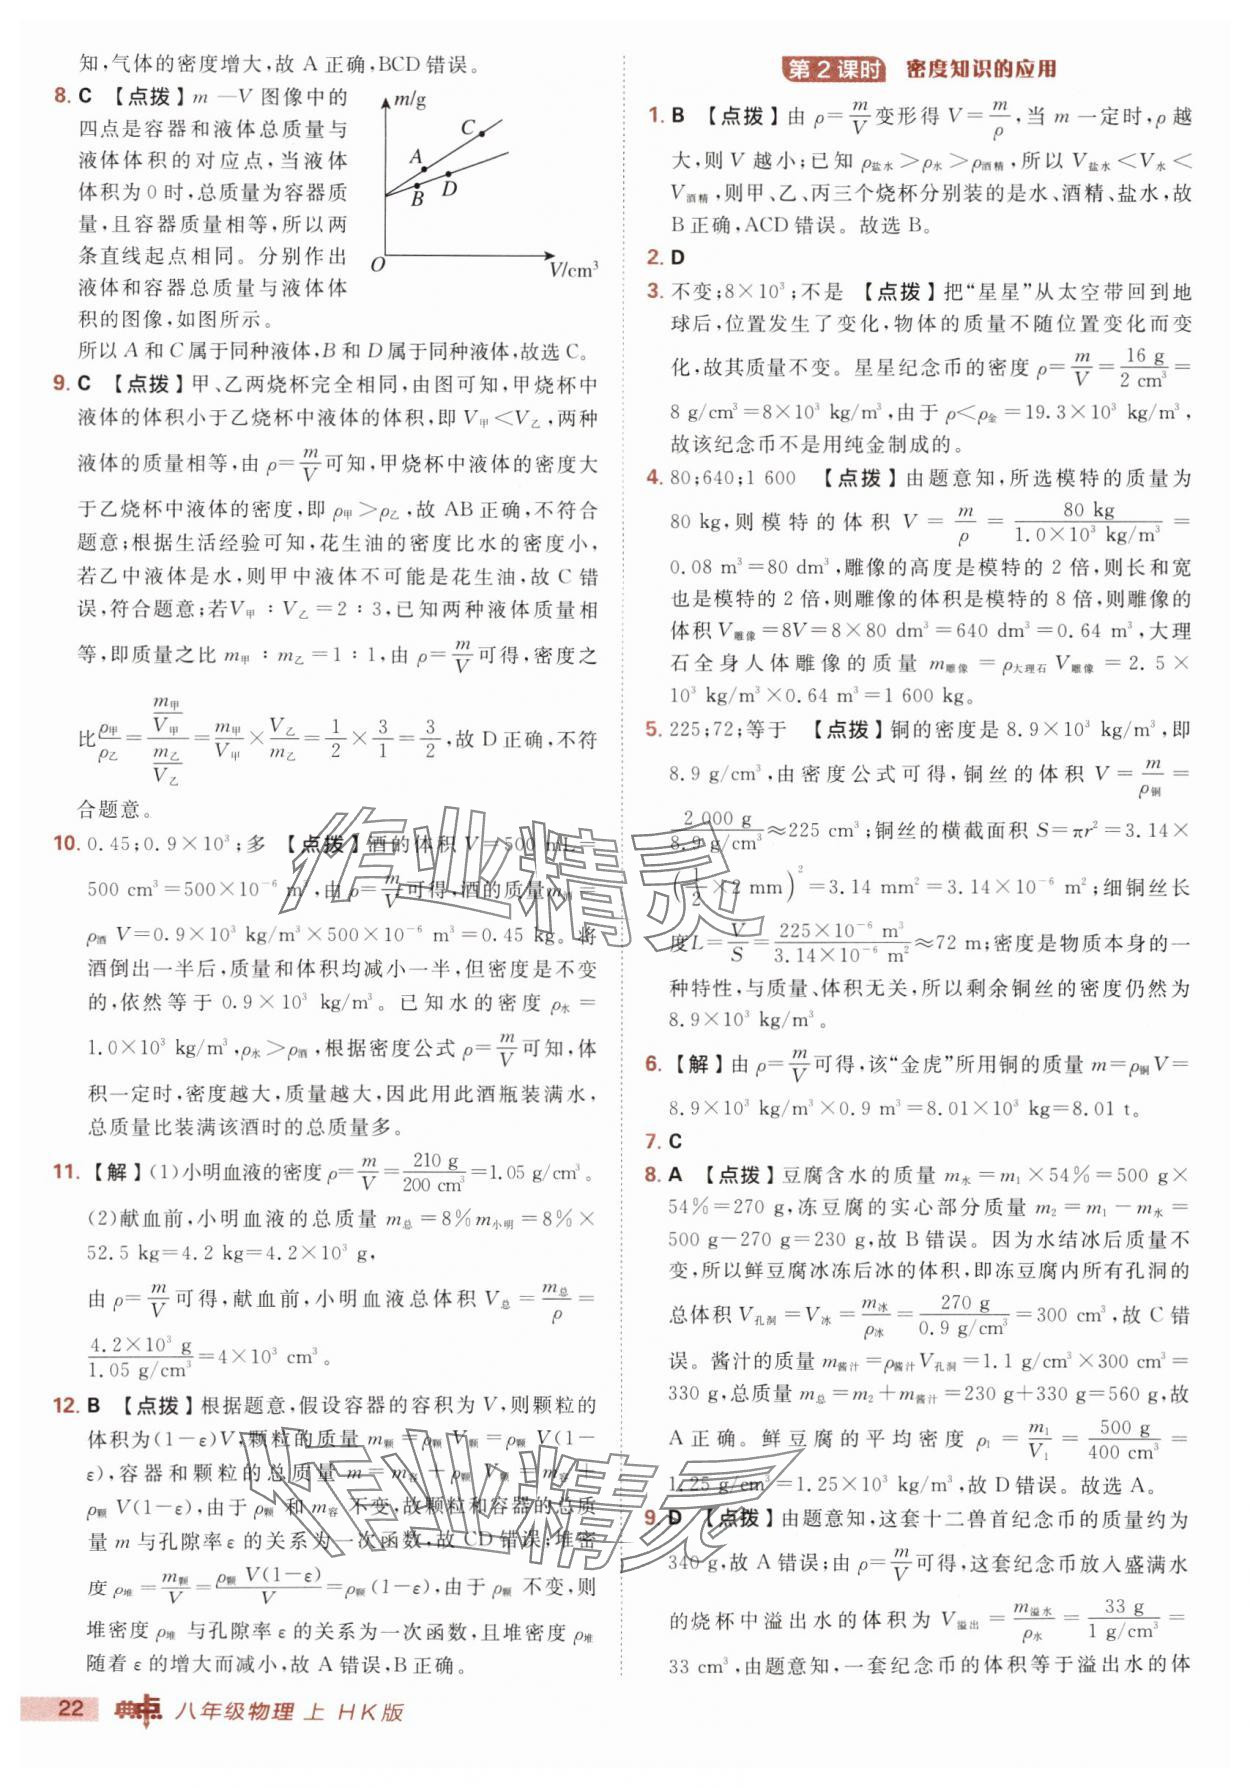 知,气体的密度增大,故 A 正确,BCD 错误。
8. C 【点拨】m —V 图像中的
四点是容器和液体总质量与
液体体积的对应点,当液体
体积为 0 时,总质量为容器质
量,且容器质量相等,所以两
条直线起点相同。分别作出
液体和容器总质量与液体体
积的图像,如图所示。
m/g
C
A
B
D
O
V/cm³
所以 A 和 C 属于同种液体,B 和 D 属于同种液体,故选 C。
9. C 【点拨】甲、乙两烧杯完全相同,由图可知,甲烧杯中
液体的体积小于乙烧杯中液体的体积,即 V甲<V乙,两种
液体的质量相等,由 ρ=m/V可知,甲烧杯中液体的密度大
于乙烧杯中液体的密度,即 ρ甲>ρ乙,故 AB 正确,不符合
题意;根据生活经验可知,花生油的密度比水的密度小,
若乙中液体是水,则甲中液体不可能是花生油,故 C 错
误,符合题意;若V甲∶V乙=2∶3,已知两种液体质量相
等,即质量之比 m甲∶m乙=1∶1,由 ρ=m/V可得,密度之
比ρ甲/ρ乙=(m甲/V甲)/(m乙/V乙)=m甲/V甲×V乙/m乙=1/2×3/1=3/2,故 D 正确,不符
合题意。
10. 0.45;0.9×10³;多 【点拨】酒的体积 V=500 mL=
500 cm³=500×10⁻⁶ m³,由 ρ=m/V可得,酒的质量m酒=
ρ酒 V=0.9×10³ kg/m³×500×10⁻⁶ m³=0.45 kg。将
酒倒出一半后,质量和体积均减小一半,但密度是不变
的,依然等于 0.9×10³ kg/m³。已知水的密度 ρ水=
1.0×10³ kg/m³,ρ水>ρ酒,根据密度公式 ρ=m/V可知,体
积一定时,密度越大,质量越大,因此用此酒瓶装满水,
总质量比装满该酒时的总质量多。
11. 【解】(1)小明血液的密度 ρ=m/V=210 g/200 cm³=1.05 g/cm³。
(2)献血前,小明血液的总质量 m总=8%m小明=8%×
52.5 kg=4.2 kg=4.2×10³ g,
由 ρ=m/V可得,献血前,小明血液总体积 V总=m总/ρ=
4.2×10³ g/1.05 g/cm³=4×10³ cm³。
12. B 【点拨】根据题意,假设容器的容积为 V,则颗粒的
体积为(1-ε)V,颗粒的质量 m颗=ρ颗 V颗=ρ颗 V(1-
ε),容器和颗粒的总质量 m=m容+ρ颗 V颗=m容+
ρ颗 V(1-ε),由于 ρ颗 和 m容 不变,故颗粒和容器的总质
量 m 与孔隙率 ε 的关系为一次函数,故 CD 错误;堆密
度 ρ堆=m颗/V=ρ颗 V(1-ε)/V=ρ颗(1-ε),由于 ρ颗 不变,则
堆密度 ρ堆 与孔隙率 ε 的关系为一次函数,且堆密度 ρ堆
随着 ε 的增大而减小,故 A 错误,B 正确。
第 2 课时 密度知识的应用
1. B 【点拨】由 ρ=m/V变形得 V=m/ρ,当 m 一定时,ρ 越
大,则 V 越小;已知 ρ盐水>ρ水>ρ酒精,所以 V盐水<V水<
V酒精,则甲、乙、丙三个烧杯分别装的是水、酒精、盐水,故
B 正确,ACD 错误。故选 B。
2. D
3. 不变;8×10³;不是 【点拨】把“星星”从太空带回到地
球后,位置发生了变化,物体的质量不随位置变化而变
化,故其质量不变。星星纪念币的密度 ρ=m/V=16 g/2 cm³=
8 g/cm³=8×10³ kg/m³,由于 ρ<ρ金=19.3×10³ kg/m³,
故该纪念币不是用纯金制成的。
4. 80;640;1 600 【点拨】由题意知,所选模特的质量为
80 kg,则模特的体积 V=m/ρ=80 kg/1.0×10³ kg/m³=
0.08 m³=80 dm³,雕像的高度是模特的 2 倍,则长和宽
也是模特的 2 倍,则雕像的体积是模特的 8 倍,则雕像的
体积 V雕像=8V=8×80 dm³=640 dm³=0.64 m³,大理
石全身人体雕像的质量 m雕像=ρ大理石 V雕像=2.5×
10³ kg/m³×0.64 m³=1 600 kg。
5. 225;72;等于 【点拨】铜的密度是 8.9×10³ kg/m³,即
8.9 g/cm³,由密度公式可得,铜丝的体积 V=m/ρ铜=
2 000 g/8.9 g/cm³≈225 cm³;铜丝的横截面积 S=πr²=3.14×
(1/2×2 mm)²=3.14 mm²=3.14×10⁻⁶ m²;细铜丝长
度L=V/S=225×10⁻⁶ m³/3.14×10⁻⁶ m²≈72 m;密度是物质本身的一
种特性,与质量、体积无关,所以剩余铜丝的密度仍然为
8.9×10³ kg/m³。
6. 【解】由 ρ=m/V可得,该“金虎”所用铜的质量 m=ρ铜V=
8.9×10³ kg/m³×0.9 m³=8.01×10³ kg=8.01 t。
7. C
8. A 【点拨】豆腐含水的质量 m水=m₁×54%=500 g×
54%=270 g,冻豆腐的实心部分质量 m₂=m₁-m水=
500 g-270 g=230 g,故 B 错误。因为水结冰后质量不
变,所以鲜豆腐冰冻后冰的体积,即冻豆腐内所有孔洞的
总体积 V孔洞=V冰=m冰/ρ冰=270 g/0.9 g/cm³=300 cm³,故 C 错
误。酱汁的质量 m酱汁=ρ酱汁V孔洞=1.1 g/cm³×300 cm³=
330 g,总质量 m总=m₂+m酱汁=230 g+330 g=560 g,故
A 正确。鲜豆腐的平均密度 ρ₁=m₁/V₁=500 g/400 cm³=
1.25 g/cm³=1.25×10³ kg/m³,故 D 错误。故选 A。
9 D 【点拨】由题意知,这套十二兽首纪念币的质量约为
340 g,故 A 错误;由 ρ=m/V可得,这套纪念币放入盛满水
的烧杯中溢出水的体积为 V溢出=m溢水/ρ水=33 g/1 g/cm³=
33 cm³,由题意知,一套纪念币的体积等于溢出水的体
作业精灵
作业精灵
22 典中点 八年级物理 上 HK版